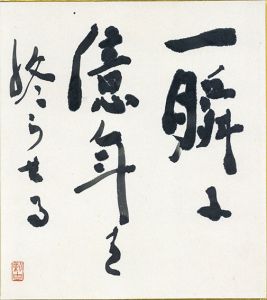 一瞬に
億年を
終らせる